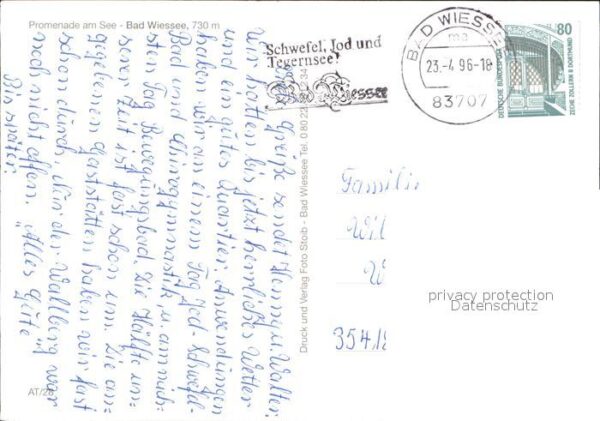 Promenade am See - Bad Wiessee, 730 m
Schwefel, Jod und
Tegernsee!
Bad Wiessee
BAD WIESSEE
23.-4.96-18
83707
80
DEUTSCHE BUNDESPOST
ZECHE ZOLLERN II DORTMUND
Grüße sendet Henny u. Walter.
Wir hatten bis jetzt herrliches Wetter
und ein gutes Quartier. Anwendungen
haben wir an einem Tag Jod-Schwefel-
Bad und Atemgymnastik u. am näch-
sten Tag Bewegungsbad. Die Hälfte un-
serer Zeit ist fast schon um. Die an-
gegebenen Gaststätten haben wir fast
schon durch. Nur der Wallberg war
noch nicht offen. "Alles Gute"
Bis später.
Druck und Verlag Foto Stoib - Bad Wiessee Tel. 0 80 22
Familie
Wil
W
354
AT/28
privacy protection
Datenschutz